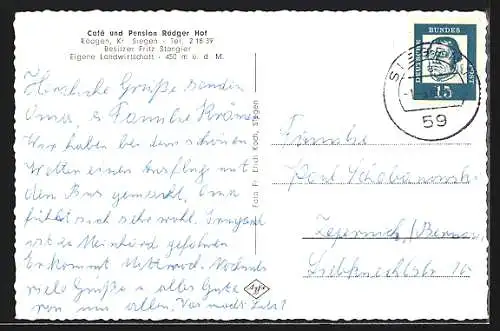 Café und Pension Rödger Hof
Rödgen, Kr. Siegen - Tel. 2 18 39
Besitzer Fritz Stangier
Eigene Landwirtschaft - 450 m ü. d. M.
Herzliche Grüße senden
Oma, & Familie
Wir haben bei dem schönen
Wetter einen Ausflug mit
dem Bus gemacht. Oma
fühlt sich sehr wohl. Irmgard
ist
Er kommt Mittwoch. Nochmals
viele Grüße & alles Gute
von uns allen.
Foto Pr. Erich Koch, Siegen
Agfa
DEUTSCHE BUNDESPOST
15
59
Familie
Paul
Zepernick/Bernau
Liebknechtstr.